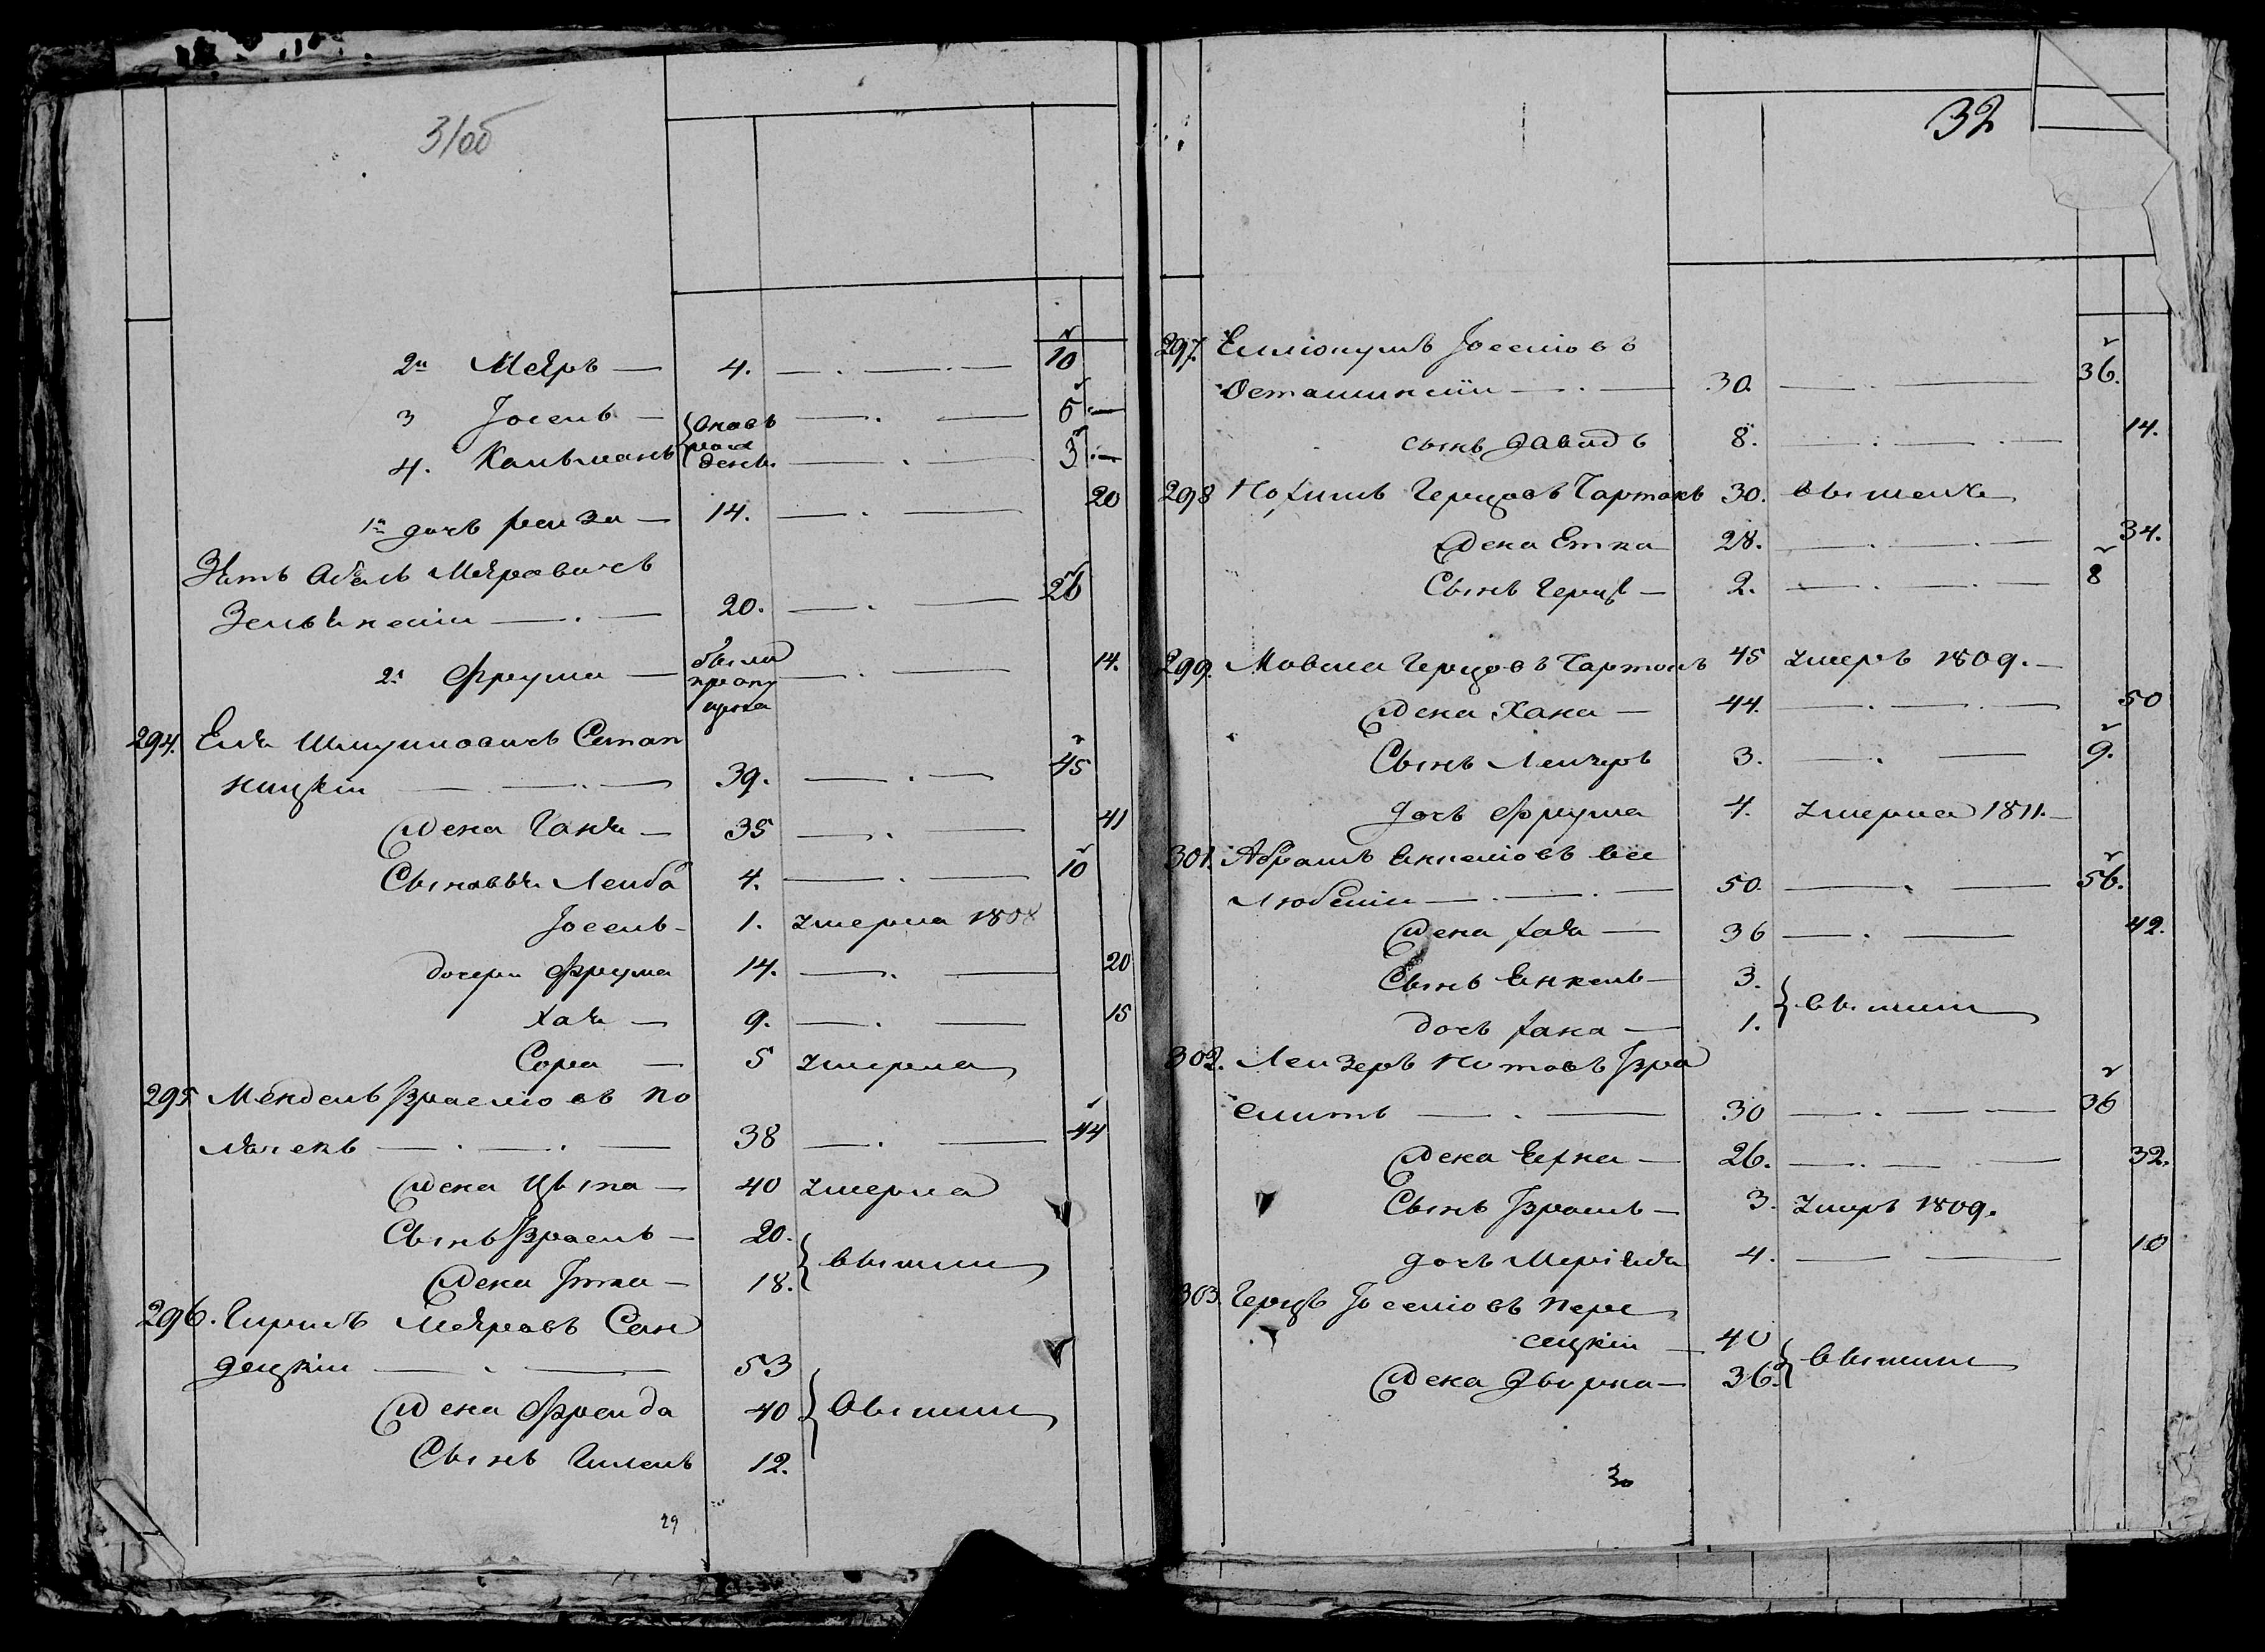 31об
2й Меѣръ — 4. — . — . — 10
3 Іосель — — . — 5 . —
вновь
рож
4. Кальманъ денъ. — . — 3 . —
1я дочь Рейза — 14. — . — 20
Зять Абель Меѣровичъ
Зельвенскіи — . — 20. — . — 26
2я Фрума — была — . — 14.
пропу
щена
294. Елѣ Шмуиловичъ Сетан
ницкіи — . — . — 39. — . — 45
Жена Ганѣ — 35 — . — 41
Сыновьѣ Лейба 4. — . — 10
Іосель — 1. умерла 1808
дочери Фрума 14. — . — 20
Хаѣ — 9. — . — 15
Сора — 5 умерла
295 Мендель Израеліовъ По
лѣчекъ — . — . — 38 — . — 44
Жена Цыпа — 40 умерла
Сынъ Израель — 20.
} вышли
Жена Итка — 18.
296. Гиршъ Меѣровъ Сен
децкіи — . — 53
Жена Фрейда 40 } вышли
Сынъ Гилель 12.
29
32
297. Іоселіовъ
Осташинскіи — . — 30. — . — 36.
сынъ Давидъ 8. — . — . — 14.
298 Нохимъ Герцовъ Чартокъ 30. вышелъ
Жена Етка 28. — . — . — 34.
Сынъ Герцъ — 2. — . — . — 8
299. Мовша Герцовъ Чартокъ 45 умеръ 1809. —
Жена Хана — 44. — . — . — 50
Сынъ Лейзеръ 3. — . — 9.
дочь Фрума 4. умерла 1811. —
301. Абрамъ Янкеліовъ Все
любскіи — . — . — 50. — . — 56.
Жена Хаѣ — 36 — . — 42.
Сынъ Янкель — 3.
} вышли
дочь Хана — 1.
302. Лейзеръ Нотовъ Изра
елитъ — . — 30 — . — . — 36
Жена — 26. — . — . — 32.
Сынъ Израиль — 3. умеръ 1809.
дочь 4. — — 10
303. Герцъ Іоселіовъ Пере
сецкіи — 40
} вышли
Жена Двирка — 36.
30